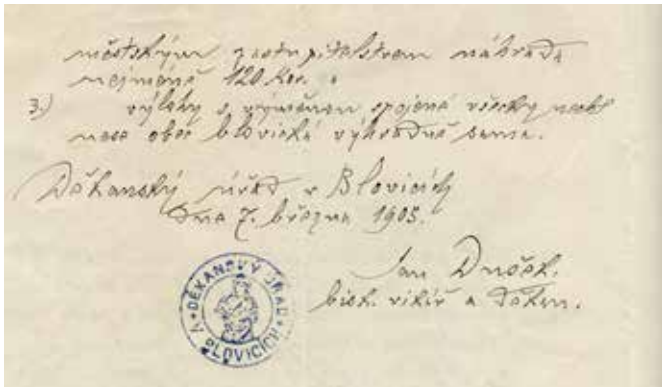 městským zastupitelstvem náhrada
nejméně 120 Kor.
3.) výlohy s výměnou spojené všecky nechť
nese obec blovická výhradně sama.
Děkanský úřad v Blovicích
dne 7. března 1905.
Jan
bisk. vikář a děkan.
DĚKANSKÝ ÚŘAD V BLOVICÍCH